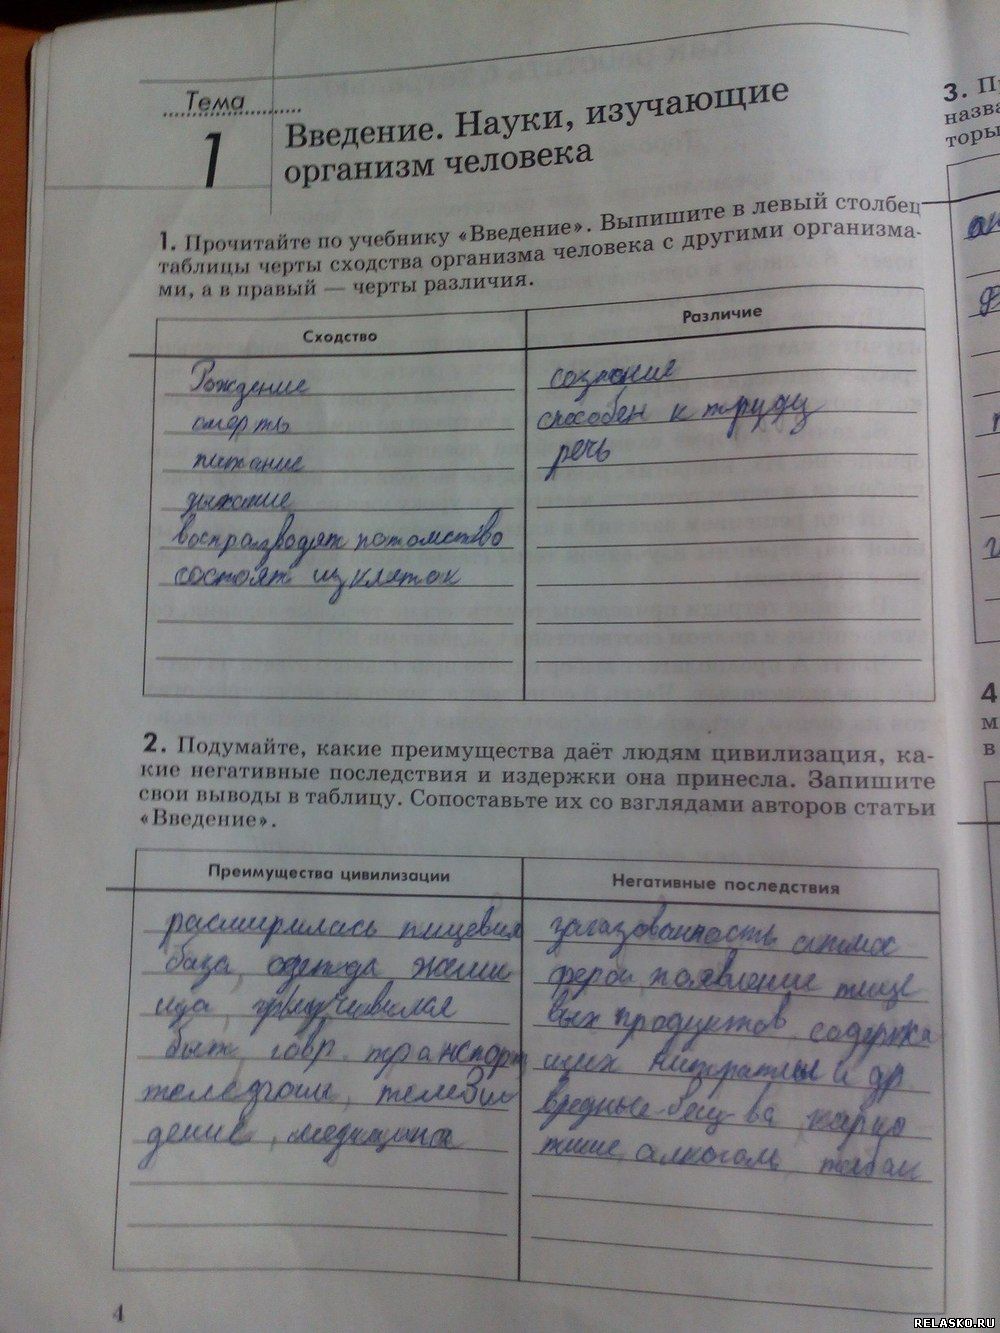 Тема
1
Введение. Науки, изучающие
организм человека
1. Прочитайте по учебнику «Введение». Выпишите в левый столбец
таблицы черты сходства организма человека с другими организма-
ми, а в правый — черты различия.
Сходство
Различие
Рождение
смерть
питание
дыхание
воспроизводят потомство
состоят из клеток
сознание
способен к труду
речь
2. Подумайте, какие преимущества даёт людям цивилизация, ка-
кие негативные последствия и издержки она принесла. Запишите
свои выводы в таблицу. Сопоставьте их со взглядами авторов статьи
«Введение».
Преимущества цивилизации
Негативные последствия
расширилась пищевая
база, одежда жили
ща,
быт, совр. транспорт
телефоны, телеви
дение, медицина
загазованность атмос
феры появление пище
вых продуктов, содержа
щих нитраты и др
вредные вещ-ва нарко
тики, алкоголь, табак
4
3. П
назва
торы
4
м
в
RELASKO.RU